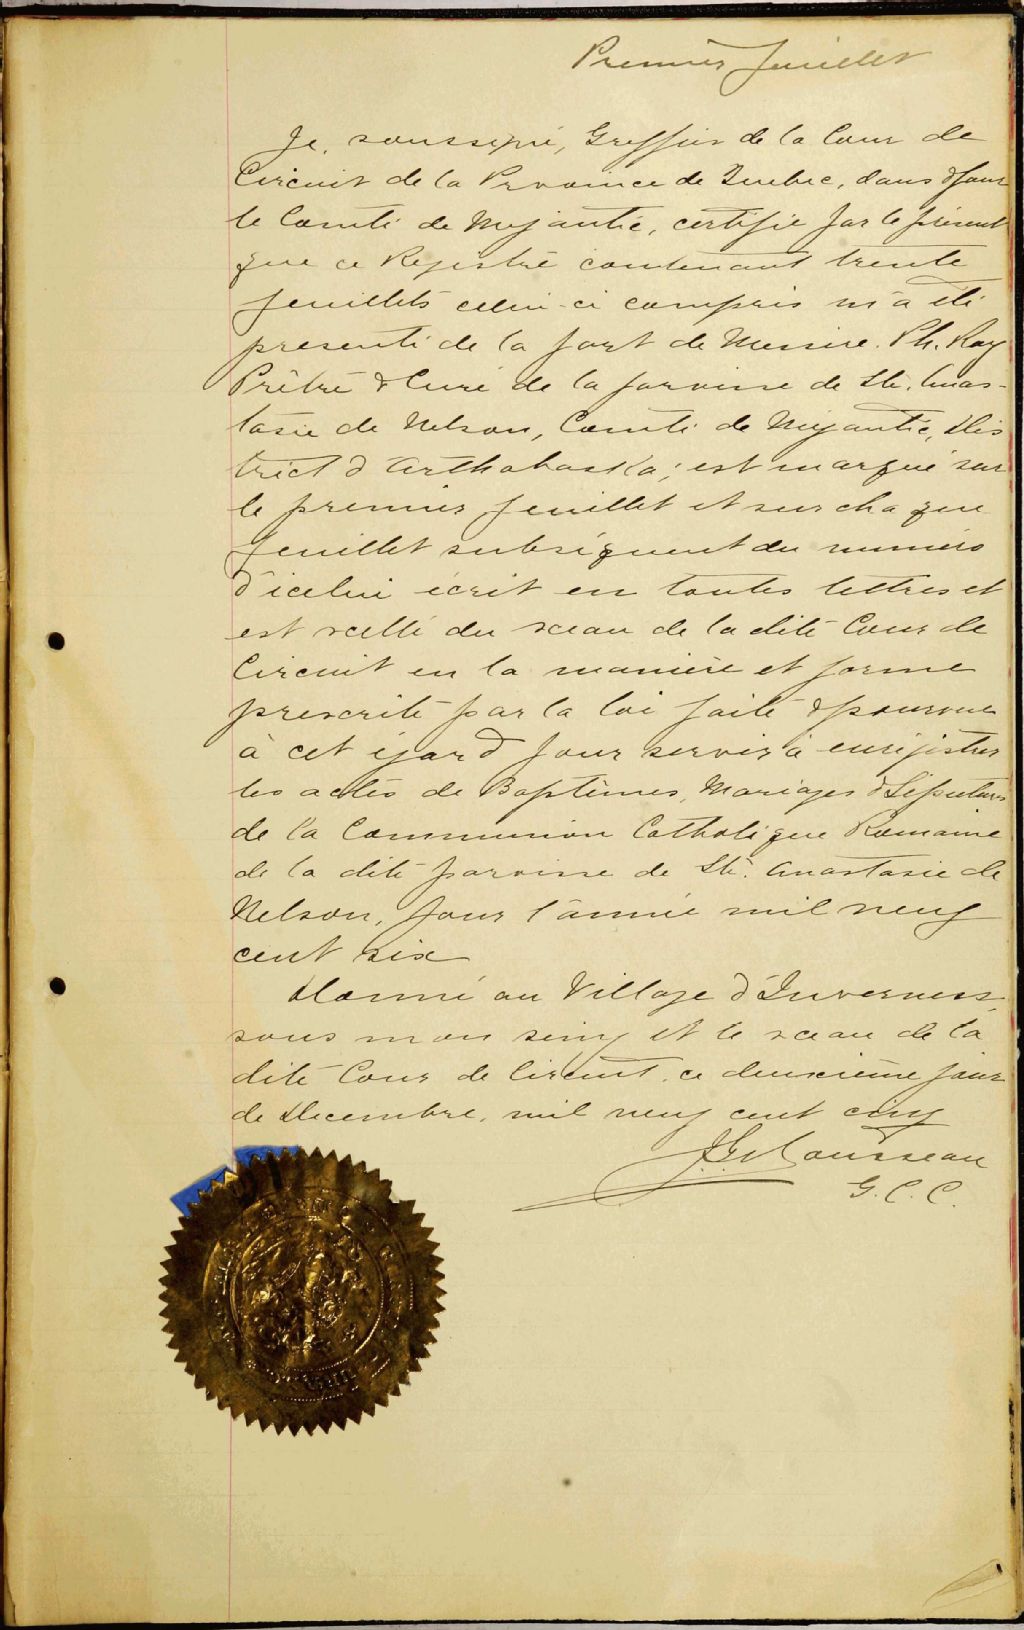 Premier feuillet
Je, soussigné, Greffier de la Cour de
Circuit de la Province de Québec, dans & pour
le Comté de Mégantic, certifie par le présent
que ce Registre contenant trente
feuillets celui-ci compris m'a été
présenté de la part de Messire Ph. Roy
Prêtre & Curé de la paroisse de Ste. Anas-
tasie de Nelson, Comté de Mégantic, Dis
trict d'Arthabaska; est marqué sur
le premier feuillet et sur chaque
feuillet subséquent du numéro
d'icelui écrit en toutes lettres et
est scellé du sceau de la dite Cour de
Circuit en la manière et forme
prescrite par la loi faite & pourvue
à cet égard pour servir à enrégistrer
les actes de Baptêmes, Mariages & Sépultures
de la Communion Catholique Romaine
de la dite paroisse de Ste. Anastasie de
Nelson, pour l'année mil neuf
cent six
Donné au Village d'Inverness
sous mon seing et le sceau de la
dite Cour de Circuit, ce deuxième jour
de Décembre, mil neuf cent cinq
Rousseau
G. C. C.